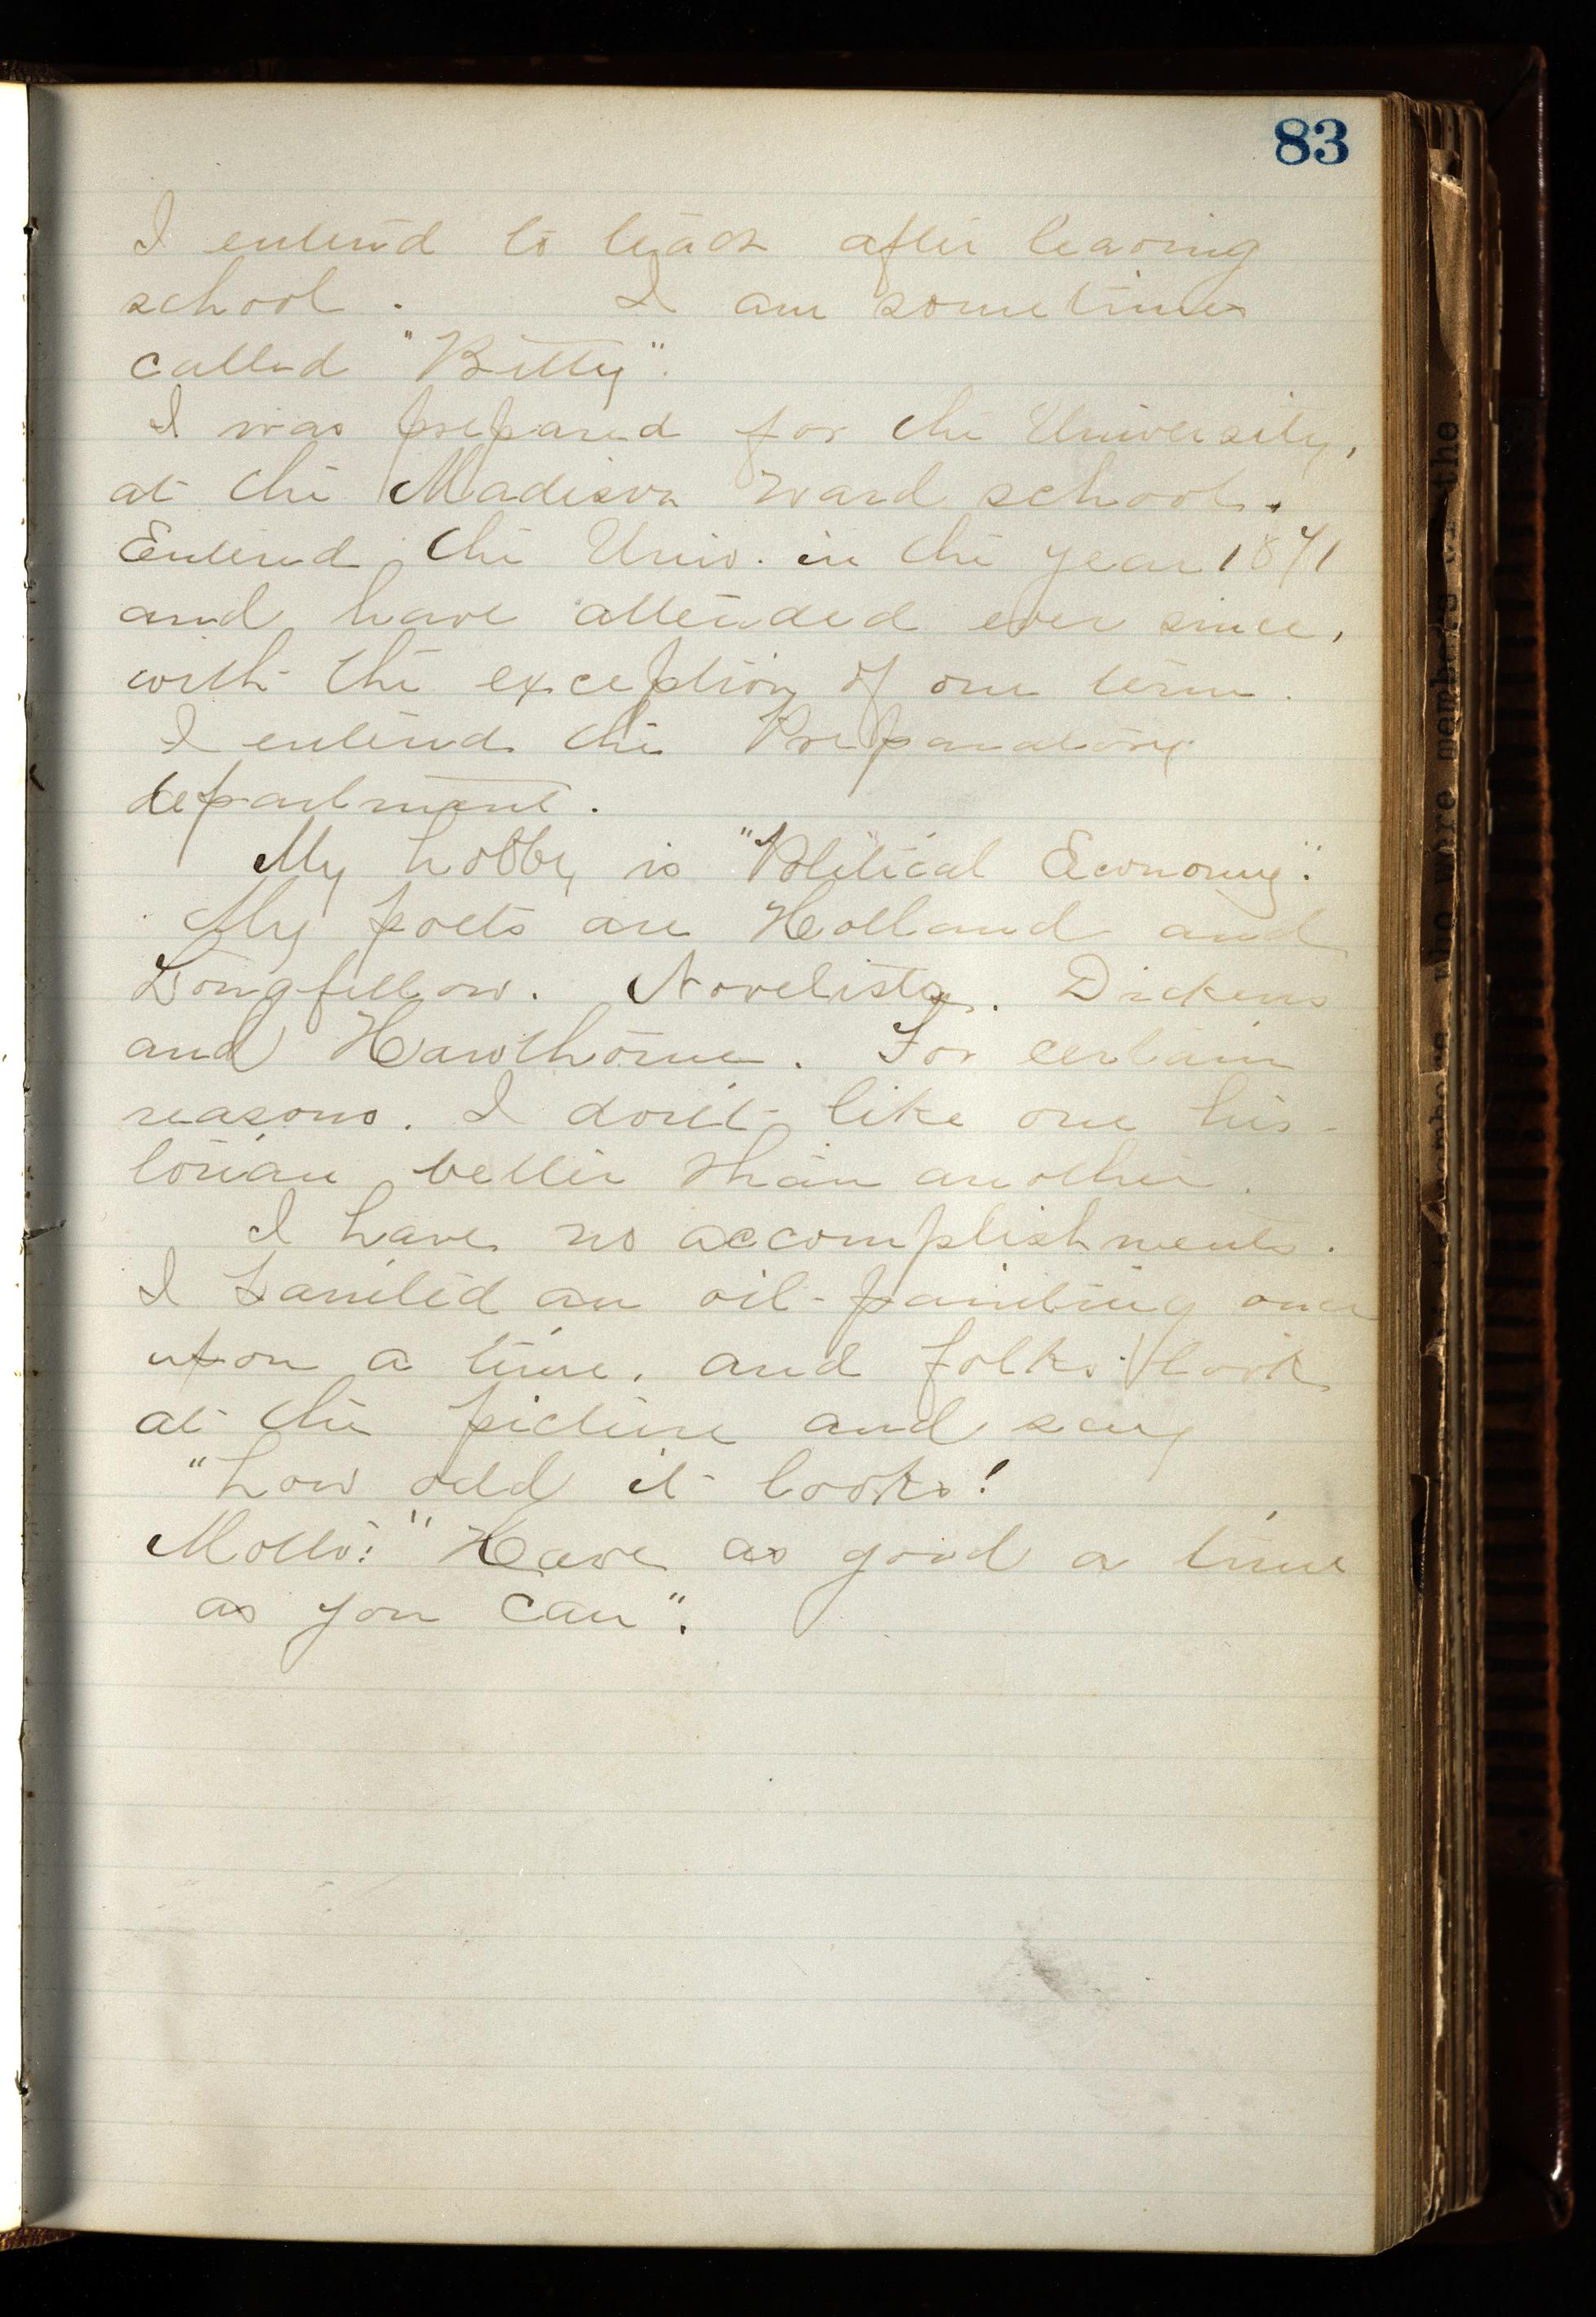 83
I entend to teach after leaving
school. I am sometimes
called "Bettty".
I was prepared for the University,
at the Madison Ward school.
Entered the Univ. in the year 1871
and have attended ever since,
with the exception of one term.
I entered the Preparatory
department.
My hobby is "Political Economy".
My poets are Holland and
Longfellow. Novelists. Dickens
and Hawthorne. For certain
reasons. I don't like one his-
torian better than another.
I have no accomplishments.
I painted an oil-painting once
upon a time, and folks look
at the picture and say
"how odd it looks!
Motto: "Have as good a time
as you can".
who were members of the